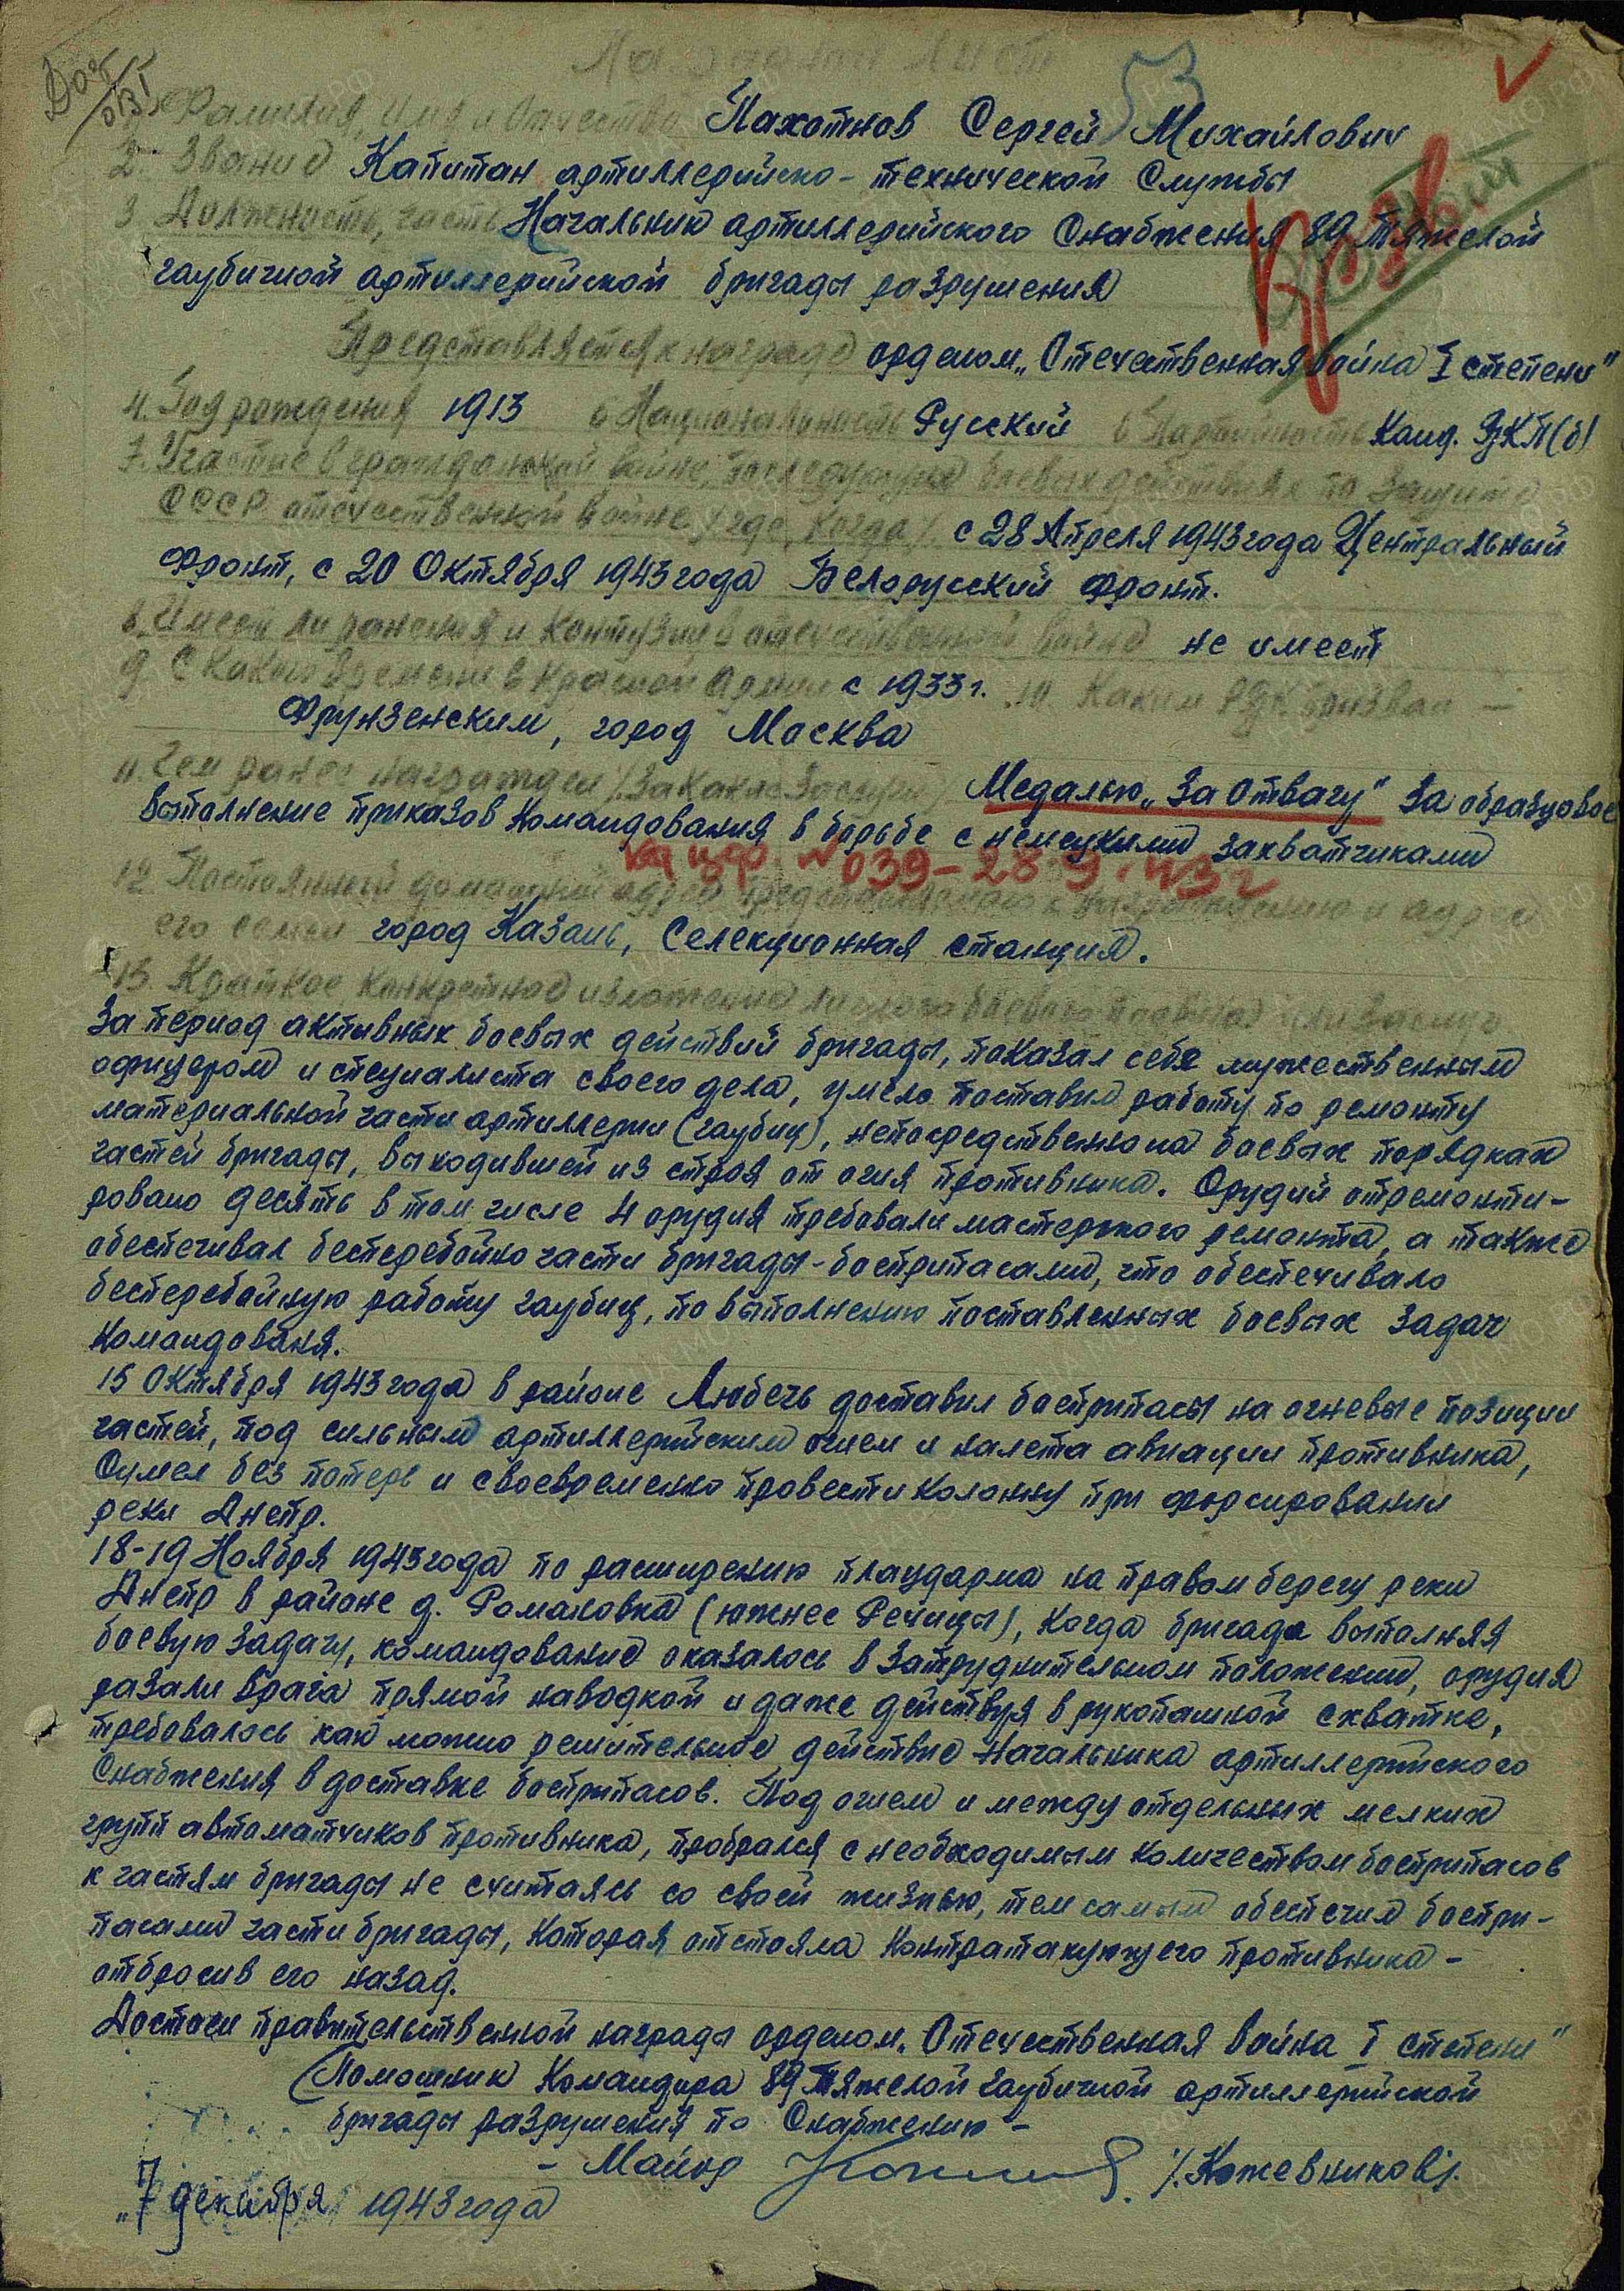 Наградной Лист
53
1. Фамилия, имя и Отчество Пахотнов Сергей Михайлович
2. Звание Капитан артиллерийско-технической Службы
3. Должность, часть Начальник артиллерийского Снабжения 89 тяжелой
гаубичной артиллерийской бригады разрушения
Представляется к награде орденом „Отечественная война I степени"
4. Год рождения 1913 5 Национальность Русский 6 Партийность Канд. ВКП(б)
7. Участие в гражданской войне, последующих боевых действиях по защите
СССР отечественной войне /где, когда/. с 28 Апреля 1943 года Центральный
Фронт, с 20 Октября 1943 года Белорусский Фронт.
8. Имеет ли ранения и контузии в отечественной войне не имеет
9. С какого времени в Красной Армии с 1933 г. 10. Каким РВК призван –
Фрунзенским, город Москва
11. Чем ранее награжден /за какие заслуги/ Медалью „За Отвагу" За образцовое
выполнение приказов командования в борьбе с немецкими захватчиками
№ 039-28.9.43 г
12. Постоянный домашний адрес представляемого к награждению и адрес
его семьи город Казань, Селекционная станция.
13. Краткое, конкретное изложение личного боевого подвига или заслуг
За период активных боевых действий бригады, показал себя мужественным
офицером и специалиста своего дела, умело поставил работу по ремонту
материальной части артиллерии (гаубиц), непосредственно на боевых порядках
частей бригады, выходившей из строя от огня противника. Орудий отремонти-
ровано десять в том числе 4 орудия требовали мастерского ремонта, а также
обеспечивал бесперебойно части бригады-боеприпасами, что обеспечивало
бесперебойную работу гаубиц, по выполнению поставленных боевых задач
командованя.
15 Октября 1943 года в районе Любечь доставил боеприпасы на огневые позиции
частей, под сильным артиллерийским огнем и налета авиации противника,
Сумел без потерь и своевременно провести колонну при форсировании
реки Днепр.
18-19 Ноября 1943 года по расширению плацдарма на правом берегу реки
Днепр в районе д. Романовка (южнее Речицы), когда бригада выполняя
боевую задачу, командование оказалось в затруднительном положении, орудия
разали врага прямой наводкой и даже действуя в рукопашной схватке,
требовалось как можно решительное действие Начальника артиллерийского
Снабжения в доставке боеприпасов. Под огнем и между отдельных мелких
групп автоматчиков противника, пробрался с необходимым количеством боеприпасов
к частям бригады не считаясь со своей жизнью, тем самым обеспечил боепри-
пасами части бригады, которая отстояла контратакующего противника -
отбросив его назад.
Достоен правительственной награды орденом „Отечественная война I степени"
Помошник Командира 89 Тяжелой гаубичной артиллерийской
бригады разрушения по Снабжению -
- Майор /Кожевников/.
„7 декабря 1943 года